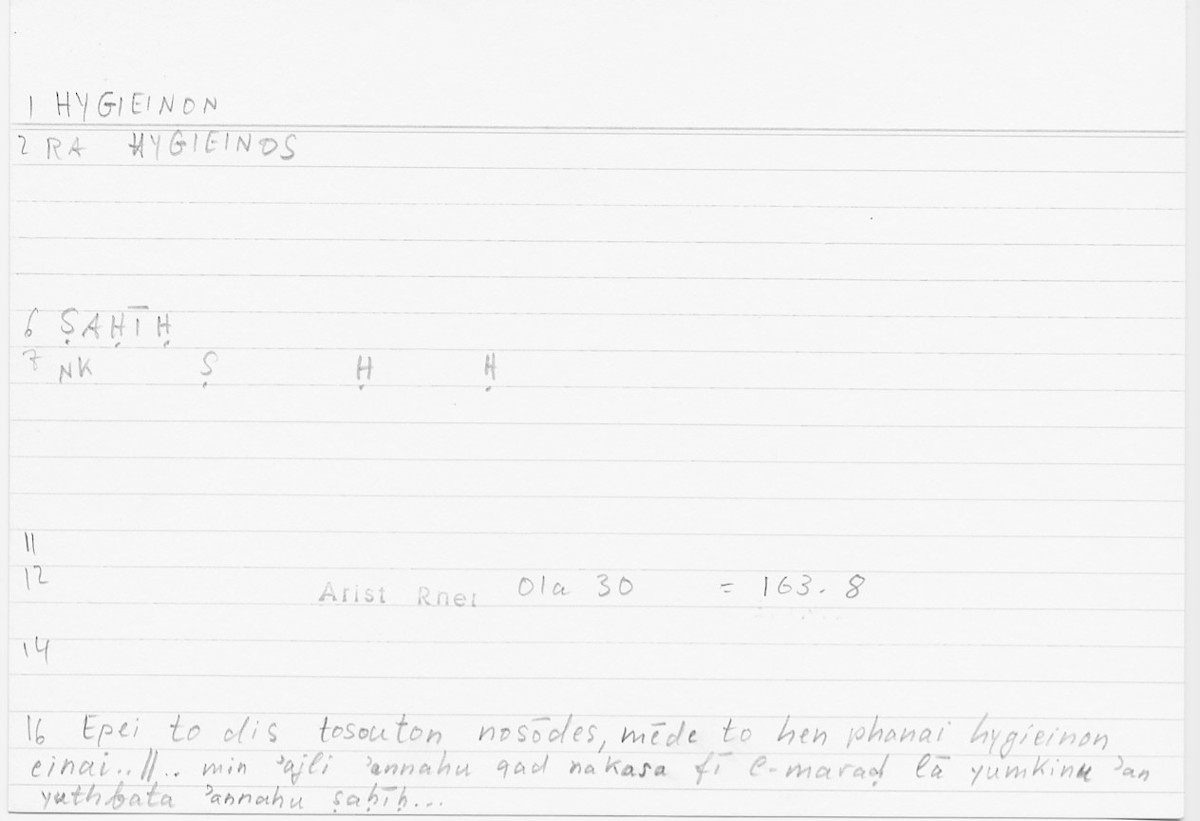 1 HYGIEINON
2 RA HYGIEINOS
6 ṢAḤĪḤ
7 NK Ṣ Ḥ Ḥ
11
12 Arist Rhet 01a 30 = 163.8
14
16 Epei to dis tosouton nosōdes, mēde to hen phanai hygieinon
einai..||.. min ʾajli ʾannahu qad nakasa fī l-maraḍ lā yumkinu ʾan
yuthbata ʾannahu ṣaḥīḥ...